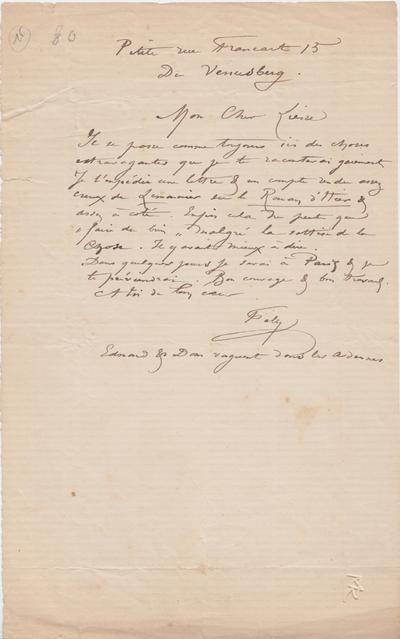 (N) 80
Petite rue Francart 15
Du Venusberg.
Mon Cher Liesse
Il se passe comme toujours ici des choses
extravagantes que je te raconterai gaiement
Je t'expédie une lettre & un compte rendu assez
creux de Lemonnier sur le Roman d'Hier &
assez à côté. Enfin cela ne peut que
« faire du bien » malgré la sottise de la
chose. Il y avait mieux à dire.
Dans quelques jours je serai à Paris & je
te préviendrai. Bon courage & bon travail.
A toi de tout cœur
Fély
Edmond & Dom vaguent dans les Ardennes